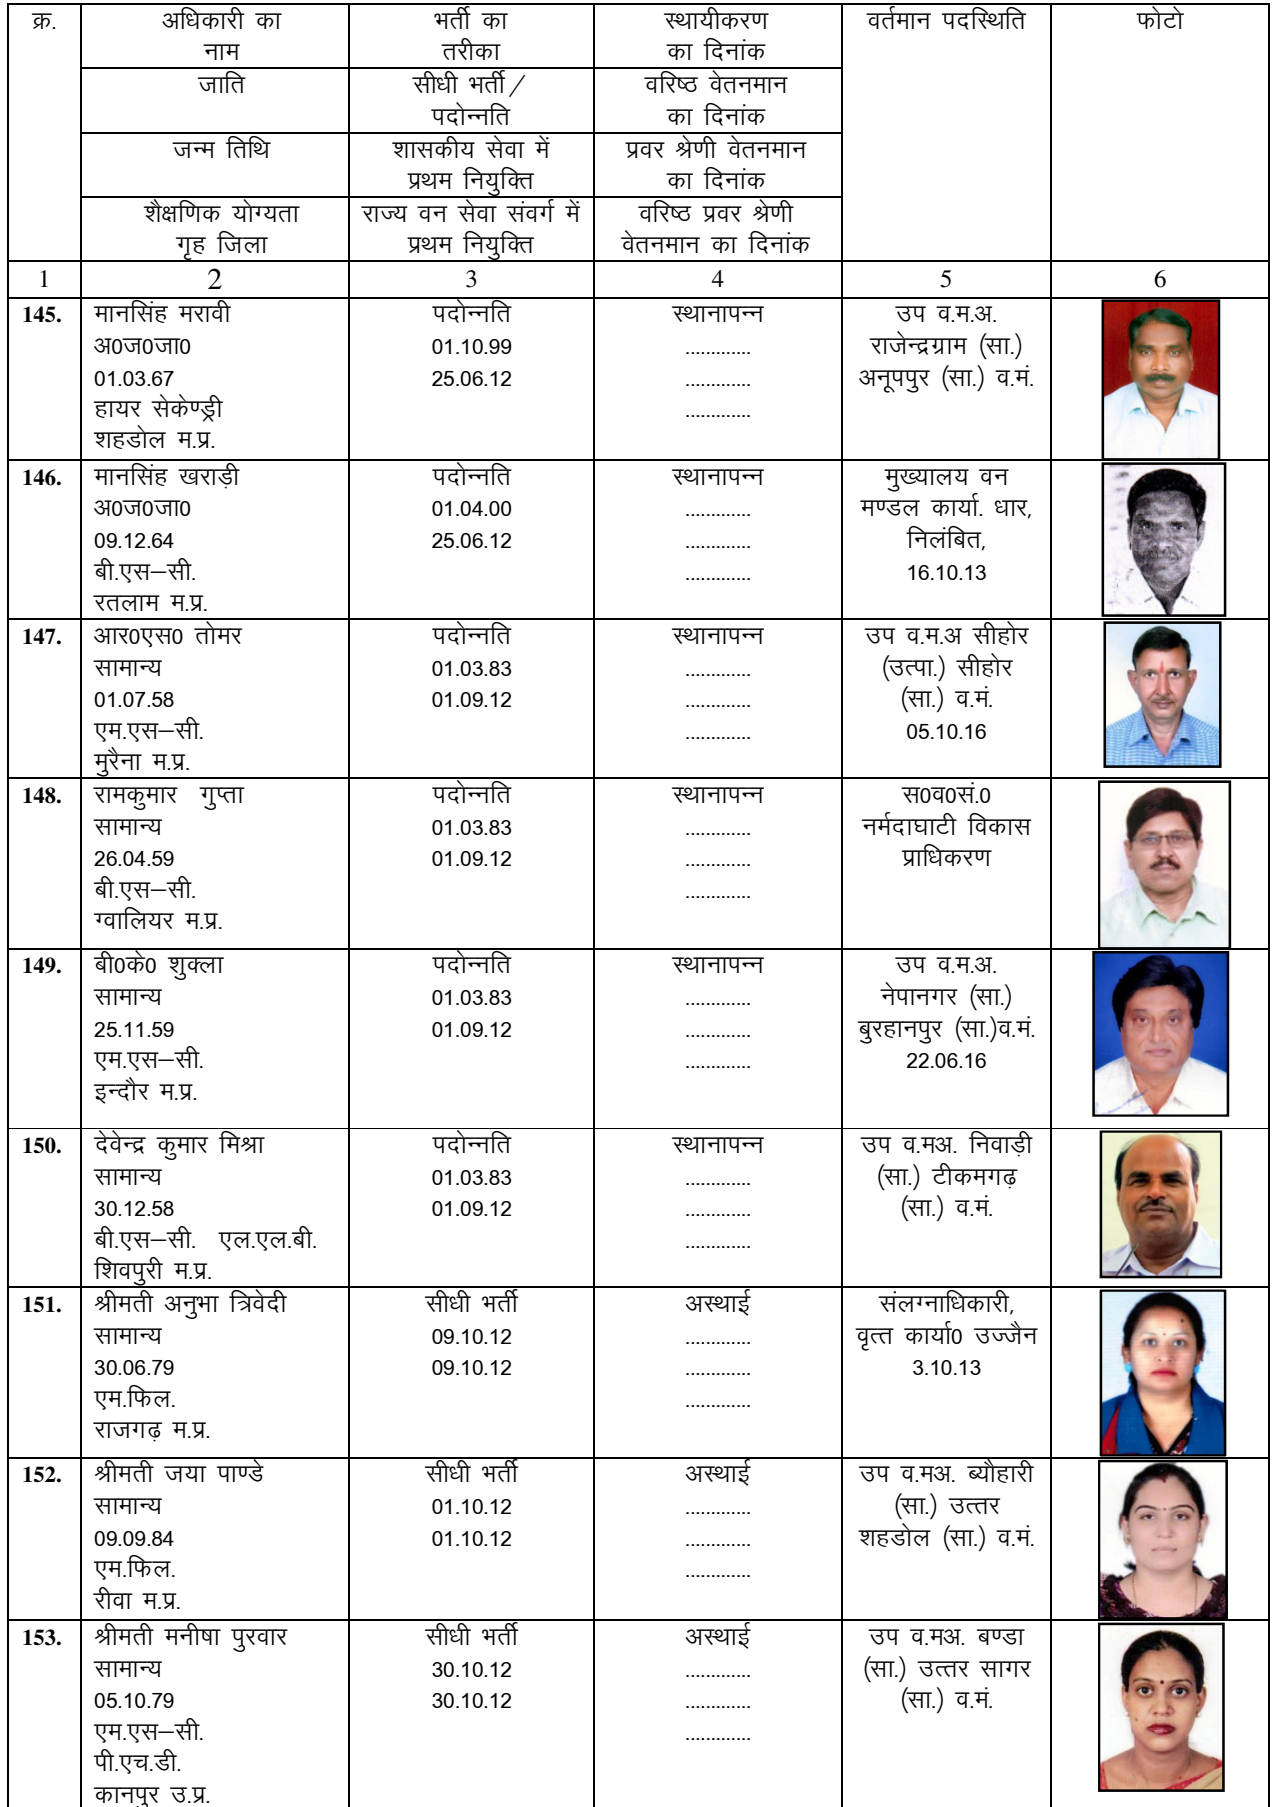 क्र.
अधिकारी का
नाम
भर्ती का
तरीका
स्थायीकरण
का दिनांक
वर्तमान पदस्थिति
फोटो
जाति
सीधी भर्ती/
पदोन्नति
वरिष्ठ वेतनमान
का दिनांक
जन्म तिथि
शासकीय सेवा में
प्रथम नियुक्ति
प्रवर श्रेणी वेतनमान
का दिनांक
शैक्षणिक योग्यता
गृह जिला
राज्य वन सेवा संवर्ग में
प्रथम नियुक्ति
वरिष्ठ प्रवर श्रेणी
वेतनमान का दिनांक
1 2 3 4 5 6
145.
मानसिंह मरावी
अ0ज0जा0
01.03.67
हायर सेकेण्ड्री
शहडोल म.प्र.
पदोन्नति
01.10.99
25.06.12
स्थानापन्न
.............
.............
.............
उप व.म.अ.
राजेन्द्रग्राम (सा.)
अनूपपुर (सा.) व.मं.
146.
मानसिंह खराड़ी
अ0ज0जा0
09.12.64
बी.एस–सी.
रतलाम म.प्र.
पदोन्नति
01.04.00
25.06.12
स्थानापन्न
.............
.............
.............
मुख्यालय वन
मण्डल कार्या. धार,
निलंबित,
16.10.13
147.
आर0एस0 तोमर
सामान्य
01.07.58
एम.एस–सी.
मुरैना म.प्र.
पदोन्नति
01.03.83
01.09.12
स्थानापन्न
.............
.............
.............
उप व.म.अ सीहोर
(उत्पा.) सीहोर
(सा.) व.मं.
05.10.16
148.
रामकुमार गुप्ता
सामान्य
26.04.59
बी.एस–सी.
ग्वालियर म.प्र.
पदोन्नति
01.03.83
01.09.12
स्थानापन्न
.............
.............
.............
स0व0सं.0
नर्मदाघाटी विकास
प्राधिकरण
149.
बी0के0 शुक्ला
सामान्य
25.11.59
एम.एस–सी.
इन्दौर म.प्र.
पदोन्नति
01.03.83
01.09.12
स्थानापन्न
.............
.............
.............
उप व.म.अ.
नेपानगर (सा.)
बुरहानपुर (सा.)व.मं.
22.06.16
150.
देवेन्द्र कुमार मिश्रा
सामान्य
30.12.58
बी.एस–सी. एल.एल.बी.
शिवपुरी म.प्र.
पदोन्नति
01.03.83
01.09.12
स्थानापन्न
.............
.............
.............
उप व.मअ. निवाड़ी
(सा.) टीकमगढ़
(सा.) व.मं.
151.
श्रीमती अनुभा त्रिवेदी
सामान्य
30.06.79
एम.फिल.
राजगढ़ म.प्र.
सीधी भर्ती
09.10.12
09.10.12
अस्थाई
.............
.............
.............
संलग्नाधिकारी,
वृत्त कार्या0 उज्जैन
3.10.13
152.
श्रीमती जया पाण्डे
सामान्य
09.09.84
एम.फिल.
रीवा म.प्र.
सीधी भर्ती
01.10.12
01.10.12
अस्थाई
.............
.............
.............
उप व.मअ. ब्यौहारी
(सा.) उत्तर
शहडोल (सा.) व.मं.
153.
श्रीमती मनीषा पुरवार
सामान्य
05.10.79
एम.एस–सी.
पी.एच.डी.
कानपुर उ.प्र.
सीधी भर्ती
30.10.12
30.10.12
अस्थाई
.............
.............
.............
उप व.मअ. बण्डा
(सा.) उत्तर सागर
(सा.) व.मं.